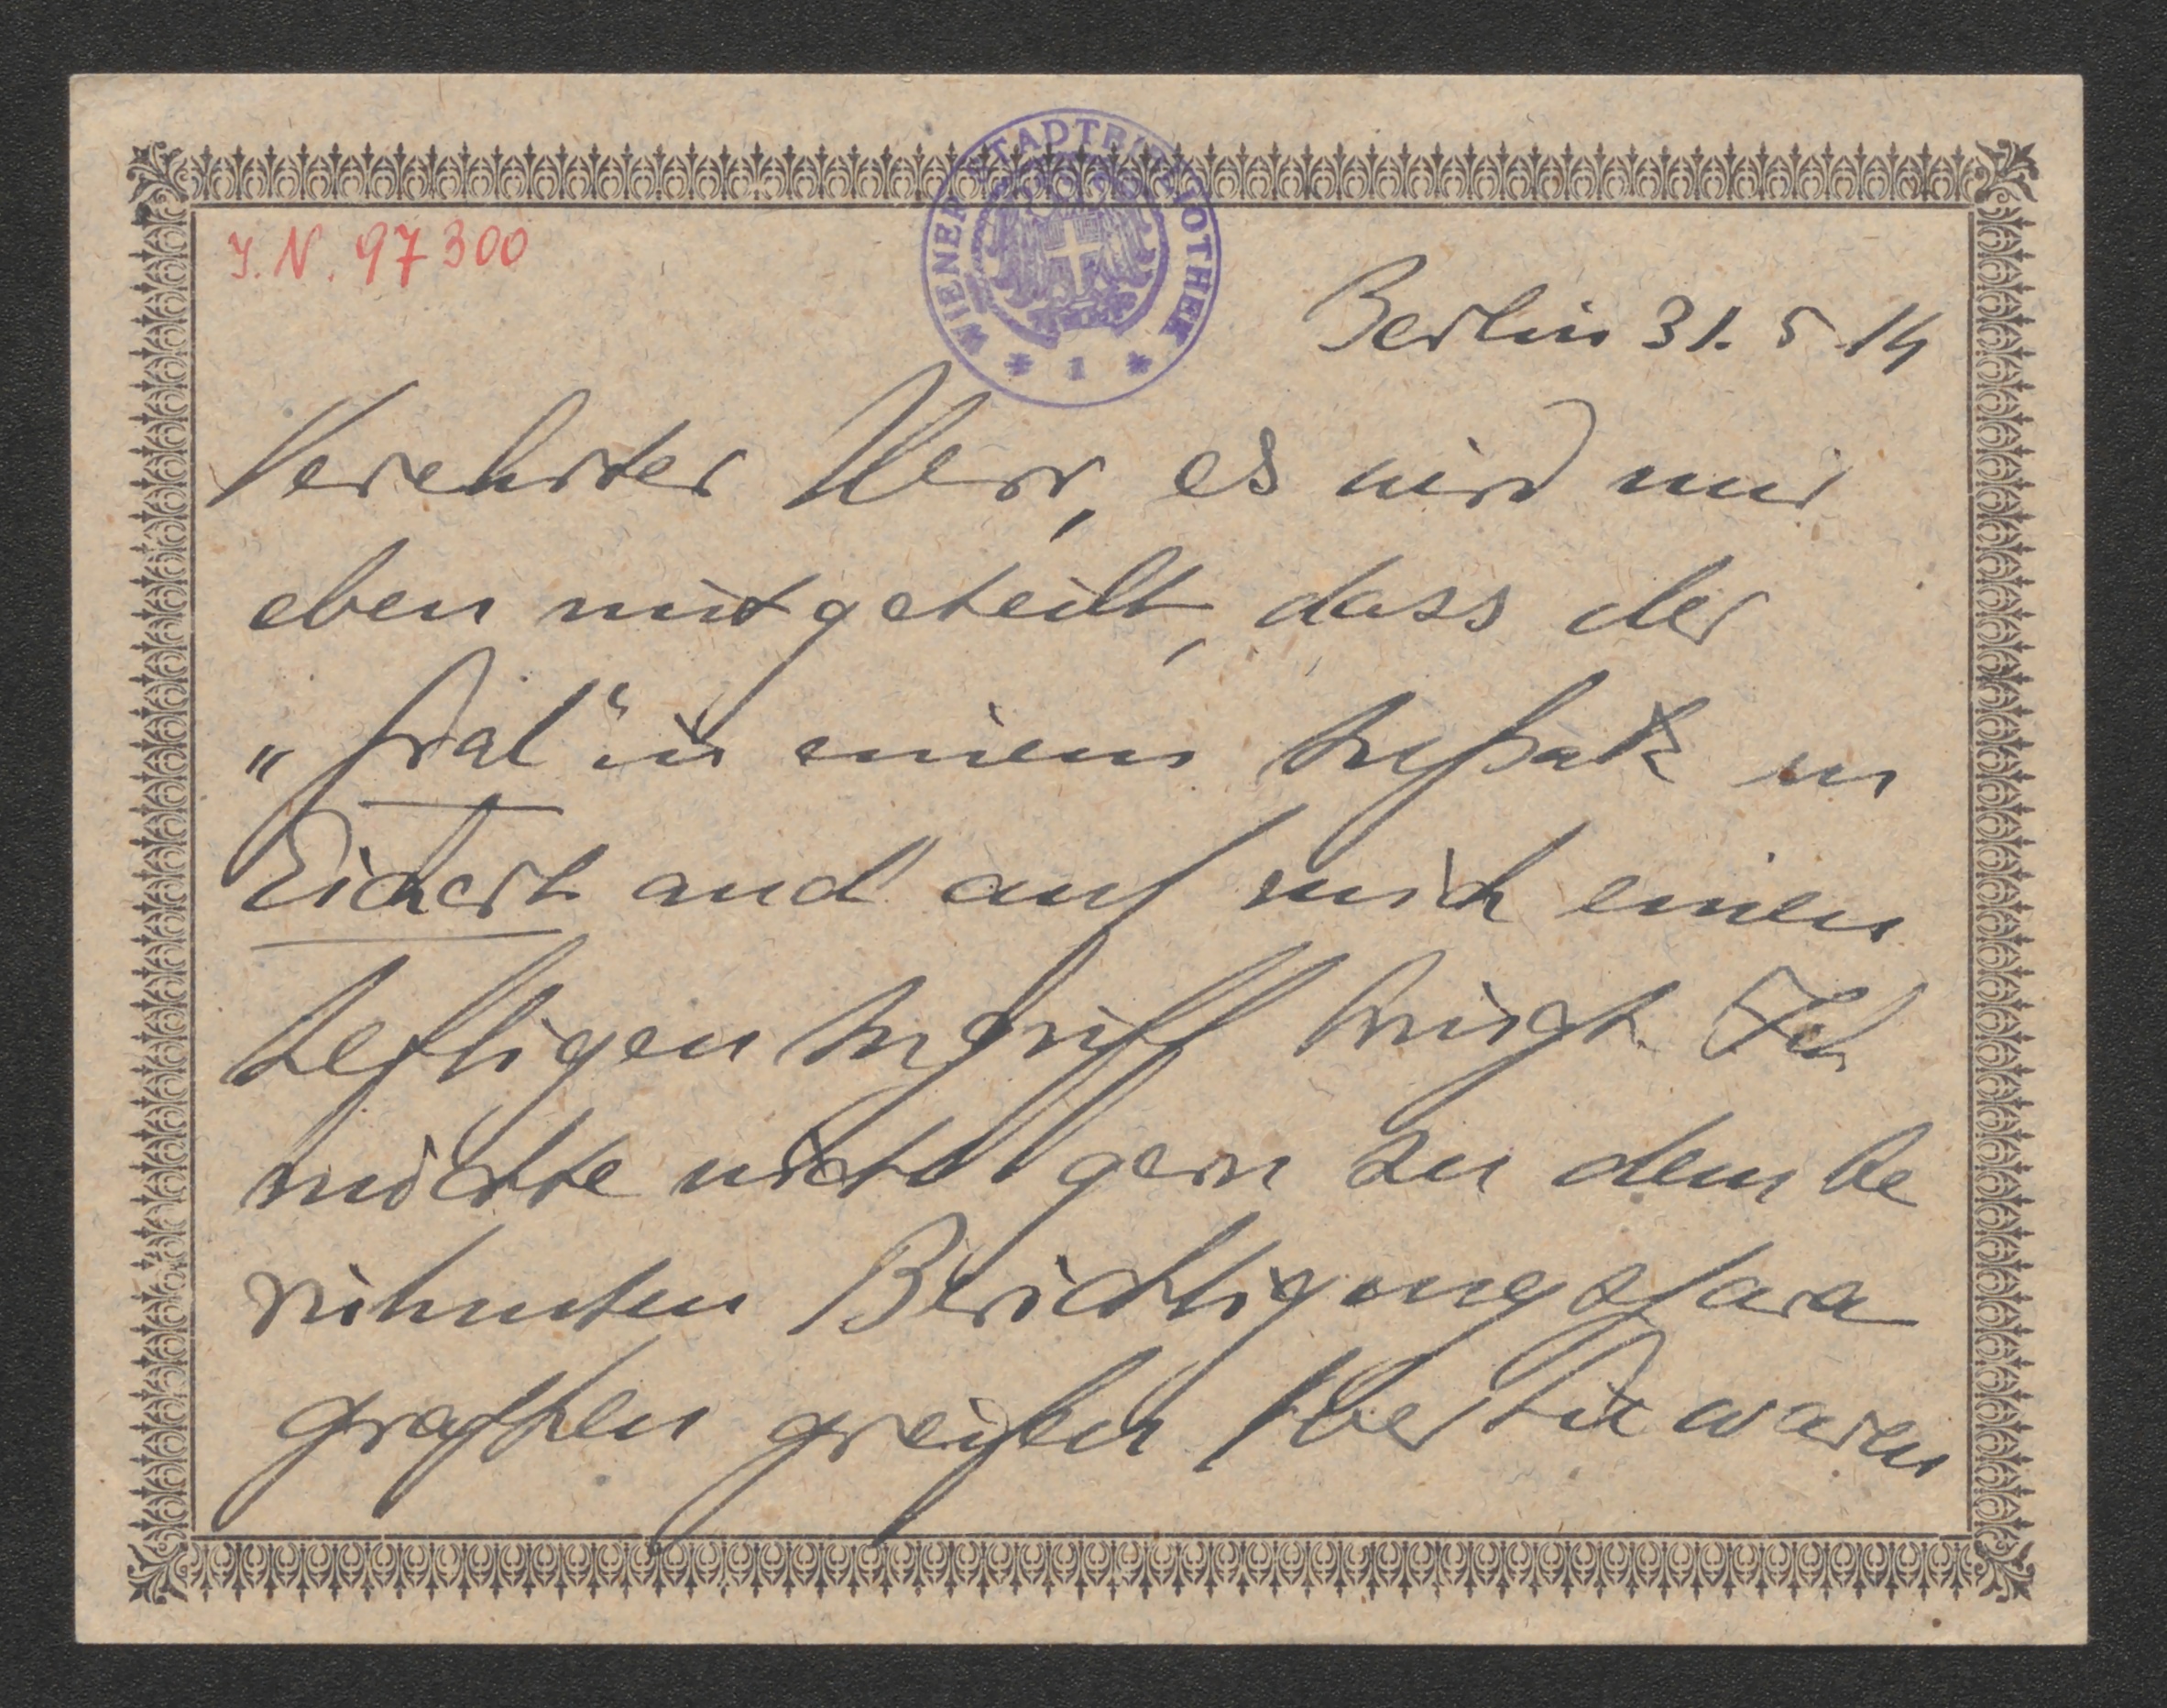 J.N. 97300
WIENER STADTBIBLIOTHEK * 1 *
Berlin 31. 5 14
Verehrter Herr, es wird mir
eben mitgeteilt, dass der
„Gral“ in einem Aufsatz
auch auf mich einen
heftigen Angriff bringt. Ich
möchte nicht gern zu dem be
rühmten Berichtigungspara
graphen greifen. Aber Sie waren